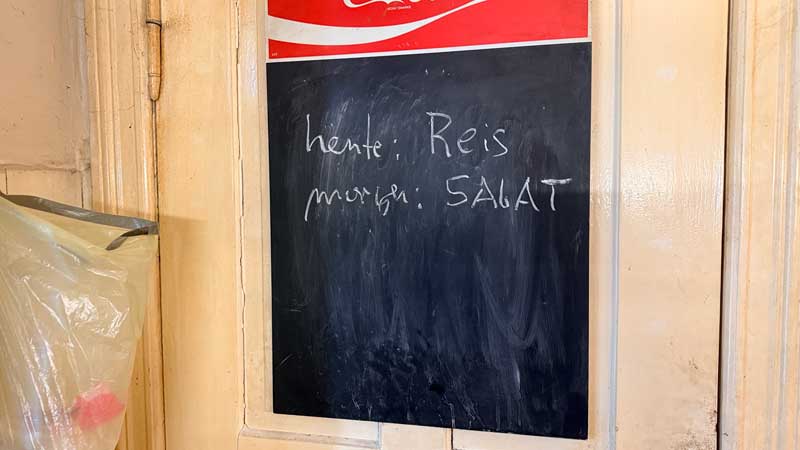 heute: Reis
morgen: SALAT